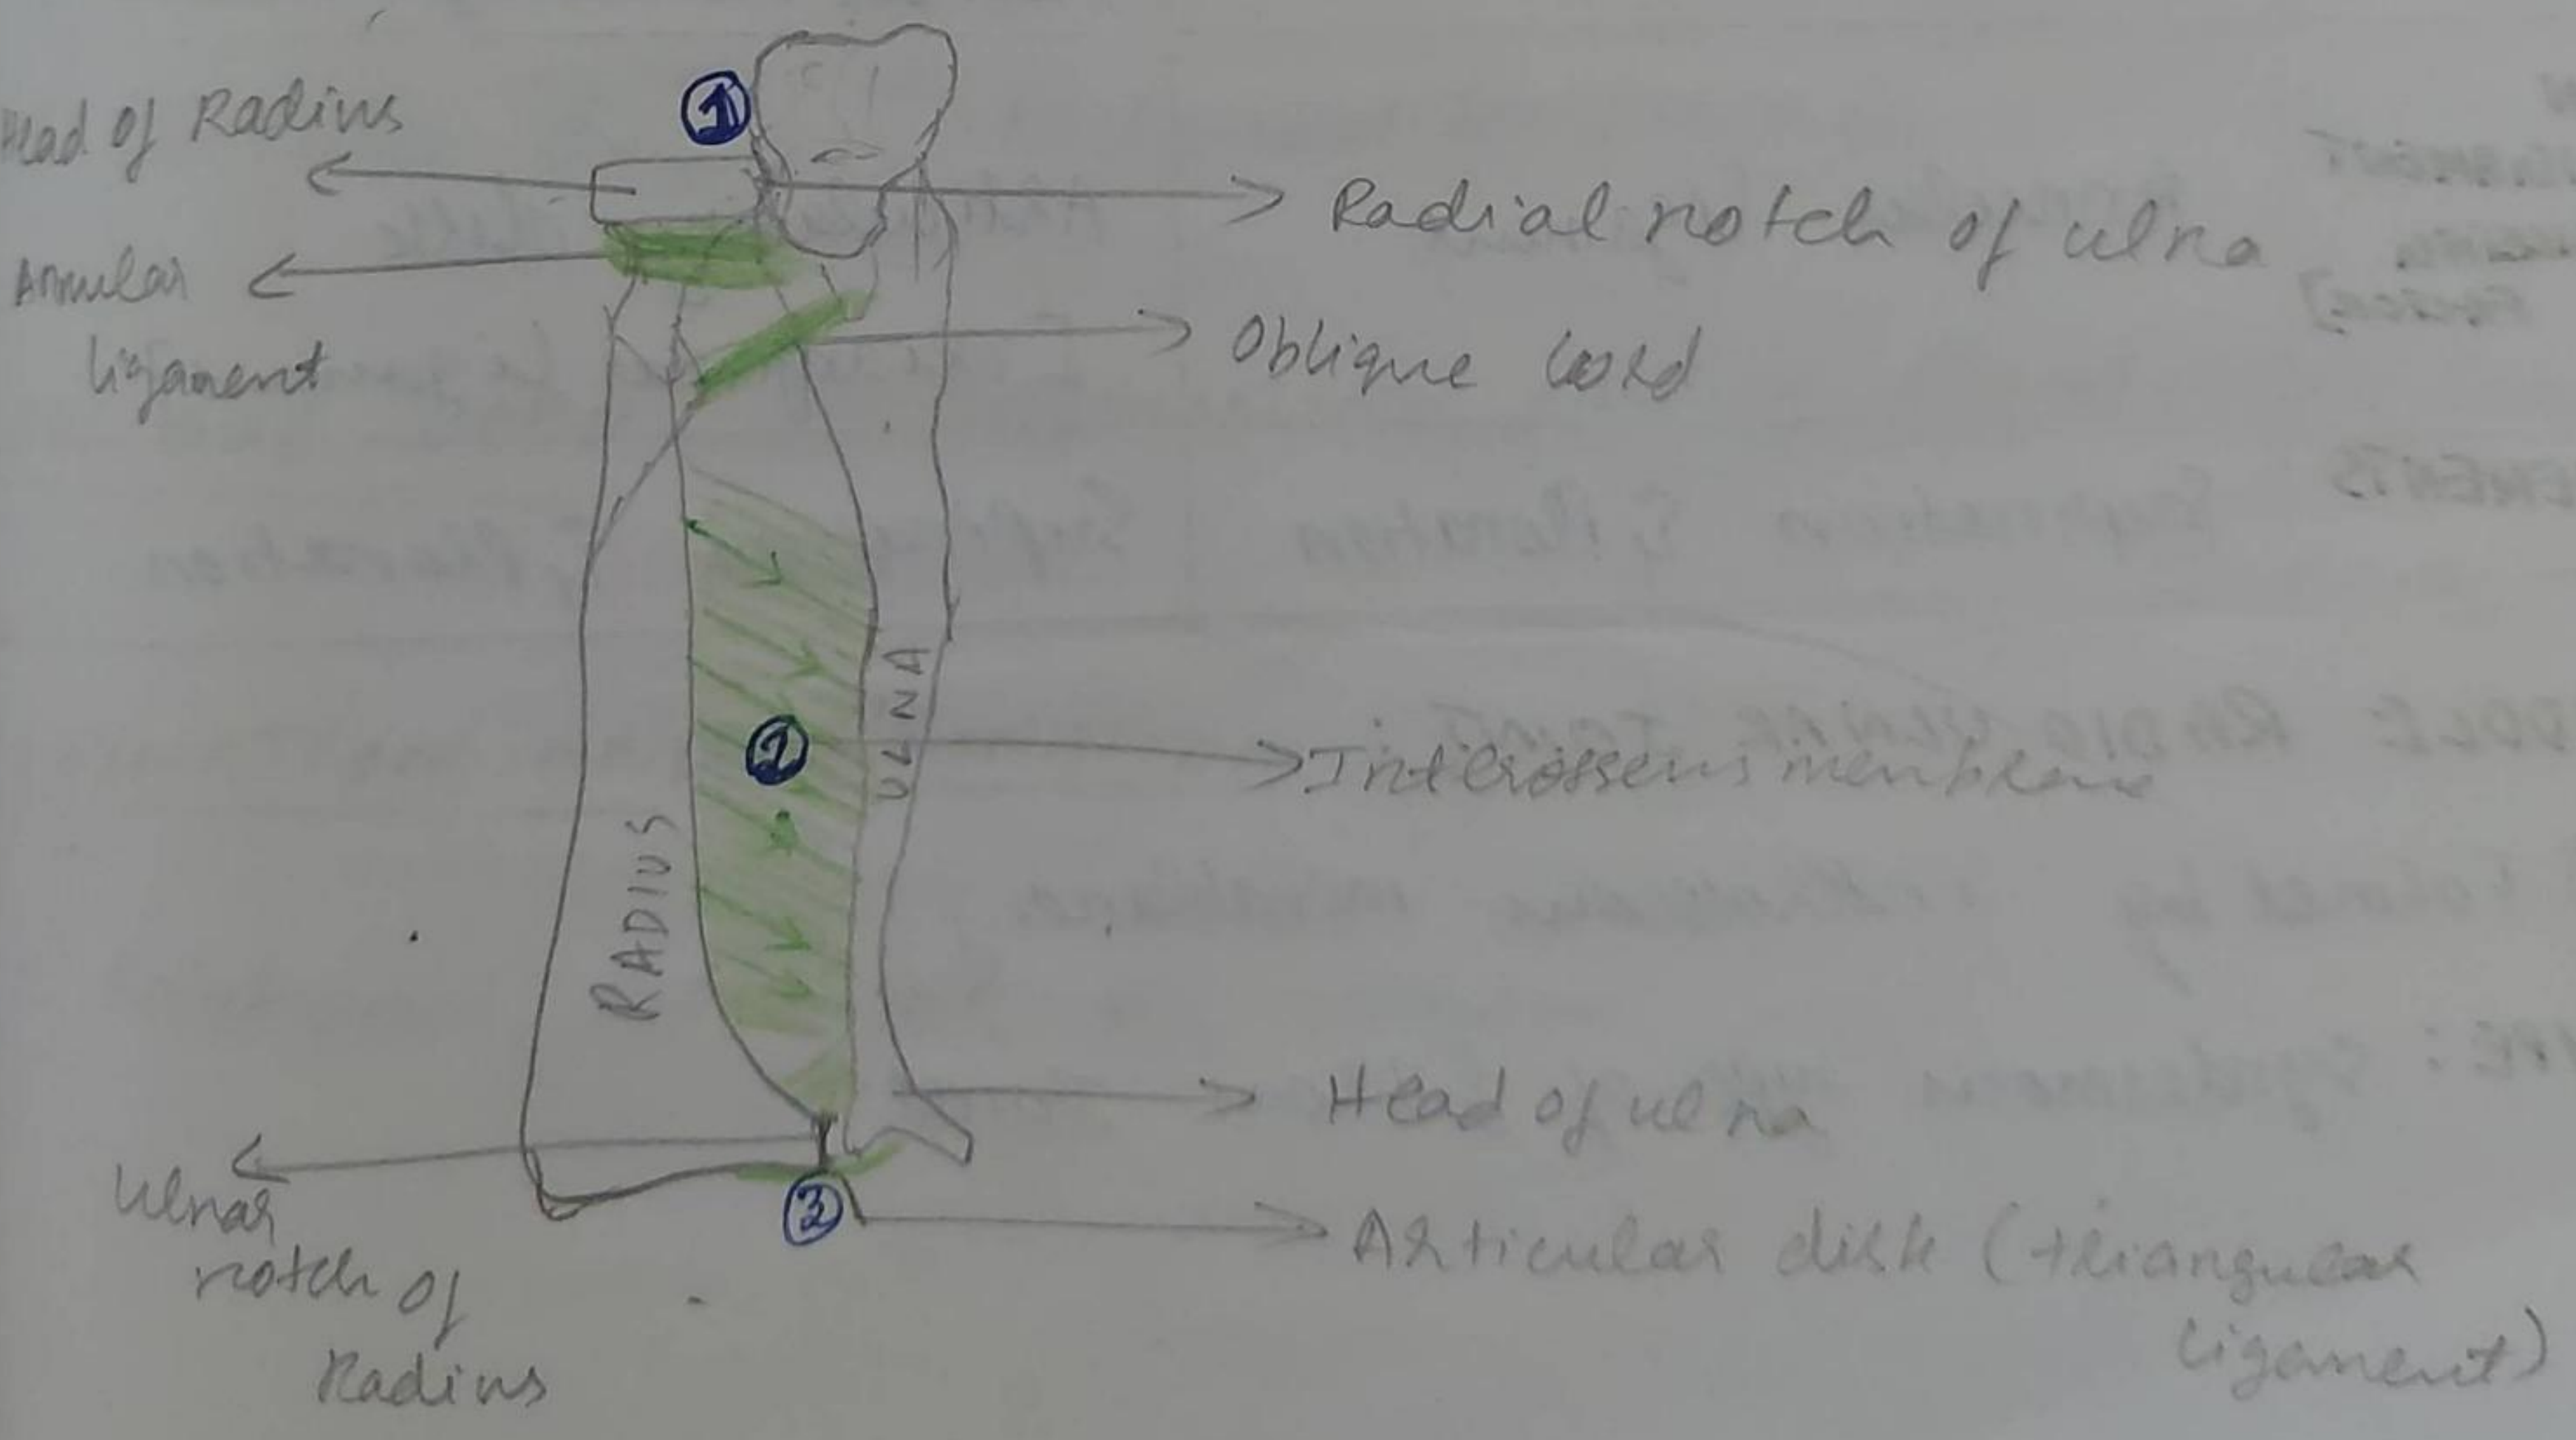 Head of Radius
①
Radial notch of ulna
Annular
ligament
Oblique cord
②
Interosseus membrane
ULNA
RADIUS
Head of ulna
Ulnar
notch of
Radius
③
Articular disk (triangular
ligament)